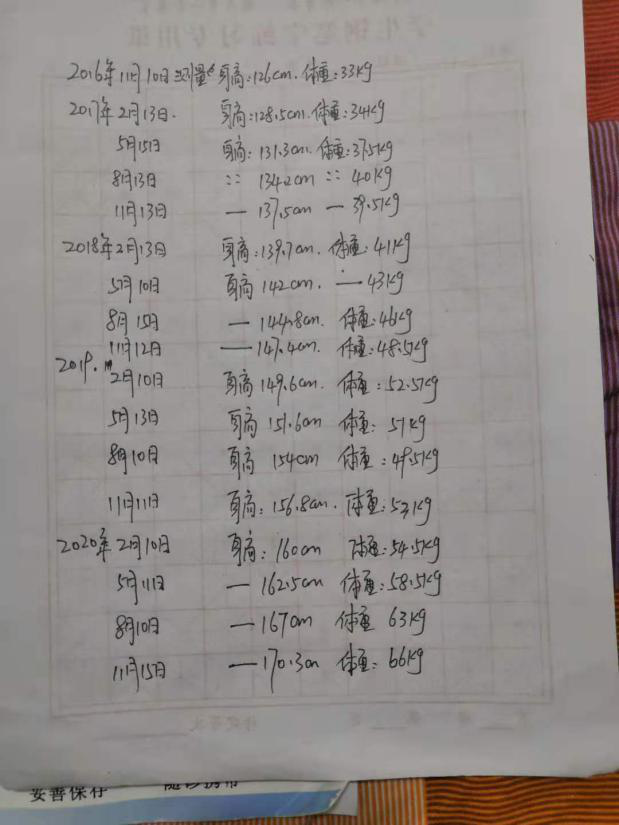 2016年11月10日测量 身高:126cm.体重:33kg
2017年2月13日. 身高:128.5cm.体重:34kg
5月15日 身高:131.3cm.体重:37.5kg
8月13日 :: 134.2cm :: 40kg
11月13日 — 137.5cm — 39.5kg
2018年2月13日 身高:139.7cm.体重:41kg
5月10日 身高142cm. — 43kg
8月15日 — 144.8cm. 体重:46kg
11月12日 — 147.4cm. 体重:48.5kg
2019. 2月10日 身高149.6cm. 体重:52.5kg
5月13日 身高151.6cm 体重:51kg
8月10日 身高 154cm 体重:49.5kg
11月11日 身高:156.8cm.体重:53kg
2020年2月10日 身高:160cm 体重:54.5kg
5月11日 — 162.5cm 体重:58.5kg
8月10日 — 167cm 体重 63kg
11月15日 — 170.3cm 体重:66kg
妥善保存 随诊携带